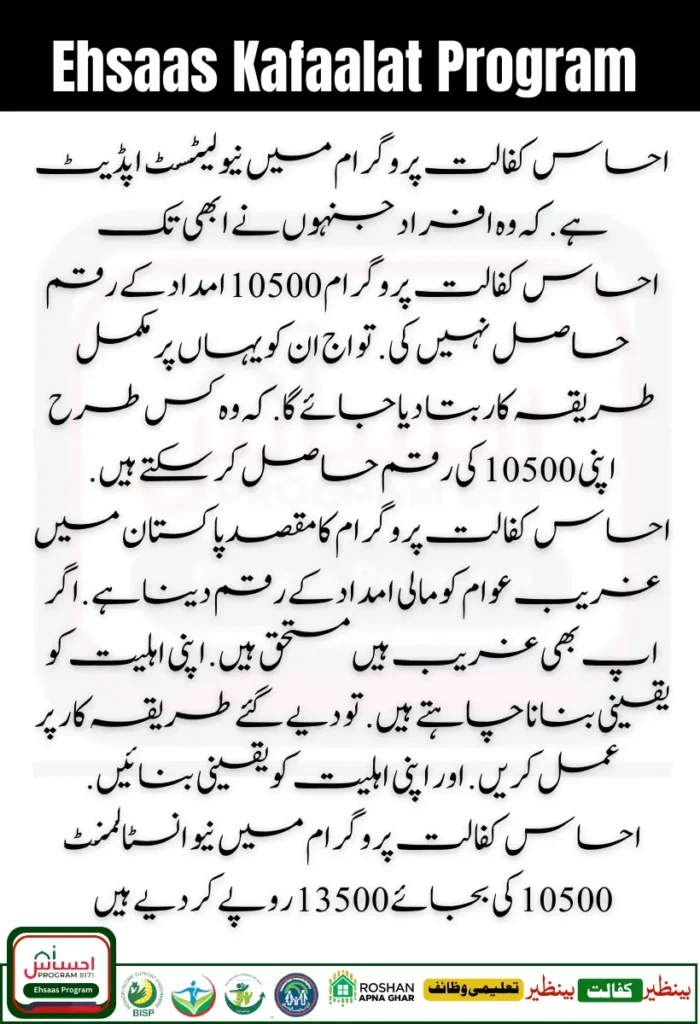 Ehsaas Kafaalat Program
احساس کفالت پروگرام میں نیو لیٹسٹ اپڈیٹ
ہے. کہ وہ افراد جنہوں نے ابھی تک
احساس کفالت پروگرام 10500 امداد کے رقم
حاصل نہیں کی. تو اج ان کو یہاں پر مکمل
طریقہ کار بتا دیا جائے گا. کہ وہ کس طرح
اپنی 10500 کی رقم حاصل کر سکتے ہیں.
احساس کفالت پروگرام کا مقصد پاکستان میں
غریب عوام کو مالی امداد کے رقم دینا ہے. اگر
اپ بھی غریب ہیں مستحق ہیں. اپنی اہلیت کو
یقینی بنانا چاہتے ہیں. تو دیے گئے طریقہ کار پر
عمل کریں. اور اپنی اہلیت کو یقینی بنائیں.
احساس کفالت پروگرام میں نیو انسٹالمنٹ
10500 کی بجائے 13500 روپے کر دیے ہیں
احساس
PROGRAM 8171
Ehsaas Program
BISP
ROSHAN
APNA GHAR
بینظیر تعلیمی وظائف
بینظیر کفالت